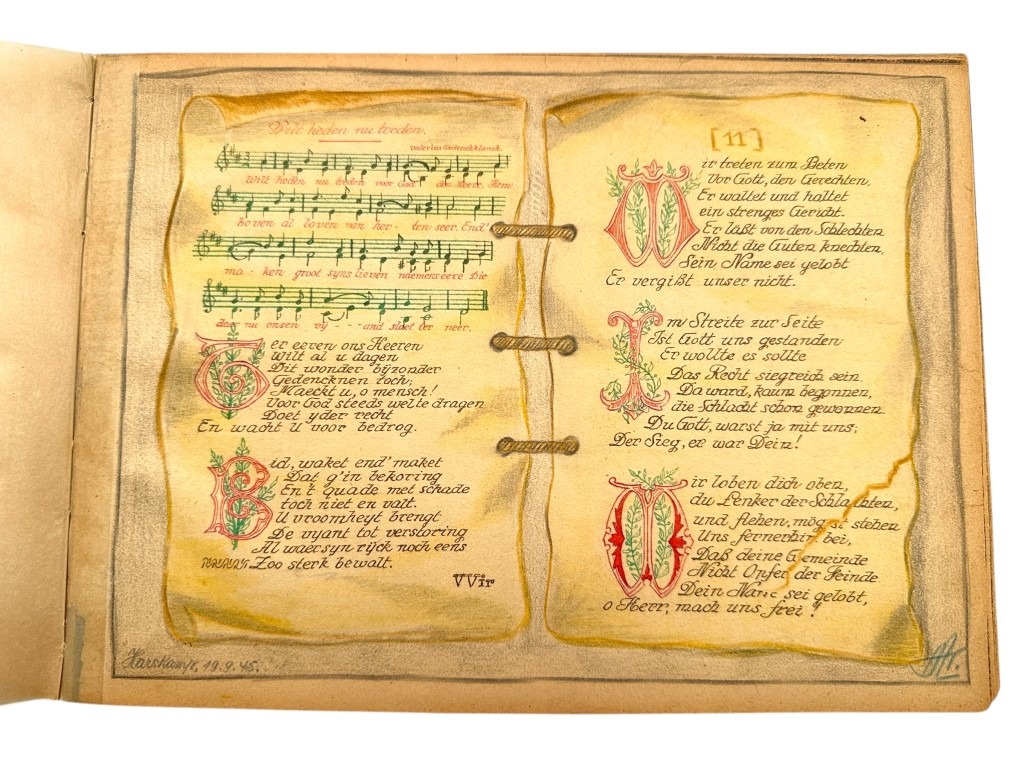 Wilt heden nu treden.
Valerius Gedenckklanck.
Wilt heden nu treden voor God den Heere, Hem
boven al loven van her - ten seer. End'
ma - ken groot syns lieven naemens eere Die
daar nu onsen vy - - - and slaet ter neer.
Ter eeren ons Heeren
Wilt al u dagen
Dit wonder bijzonder
Gedencknen toch;
Maeckt u, o mensch!
Voor God steeds welte dragen
Doet yder recht
En wacht U voor bedrog.
Bid, waket end' maket
Dat g'in bekoring
En 't quade met schade
toch niet en valt.
U vroomheyt brengt
De vyant tot verstoring
Al waer syn rijck noch eens
Zoo sterk bewalt.
[11]
Wir treten zum Beten
Vor Gott, den Gerechten,
Er waltet und haltet
ein strenges Gericht.
Er läßt von den Schlechten
Nicht die Guten knechten,
Sein Name sei gelobt
Er vergißt unser nicht.
Im Streite zur Seite
Ist Gott uns gestanden
Er wollte es sollte
Das Recht siegreich sein.
Da ward, kaum begonnen,
die Schlacht schon gewonnen.
Du Gott, warst ja mit uns;
Der Sieg, er war Dein!
Wir loben dich oben,
du Lenker der Schlachten,
und flehen, mögst stehen
Uns fernerhin bei,
Daß deine Gemeinde
Nicht Opfer der Feinde
Dein Name sei gelobt,
o Herr, mach uns frei!"
Harskamp, 19.9.45.